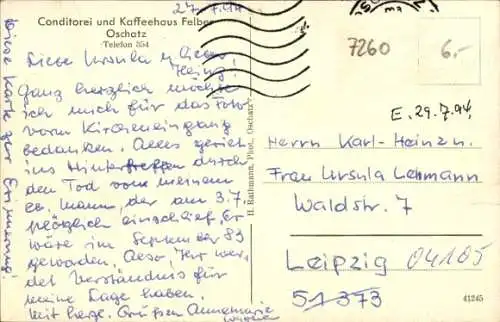 27.7.94
Conditorei und Kaffeehaus Felber
Oschatz
Telefon 354
Liebe Ursula u. lieber
Heinz!
Ganz herzlich möchte
ich mich für das Foto
vom Kircheneingang
bedanken. Alles geriet
ins Hintertreffen durch
den Tod von meinem
lb. Mann, der am 3.7.
plötzlich einschlief. Er
wäre im September 83
geworden. Also, Ihr wer-
det Verständnis für
meine Lage haben.
Mit herzl. Grüßen Annemarie
Diese Karte zur Erinnerung!
H. Rathmann, Phot., Oschatz
7260
6.-
E. 29.7.94
Herrn Karl-Heinz u.
Frau Ursula Lehmann
Waldstr. 7
Leipzig 04105
51 373
41245